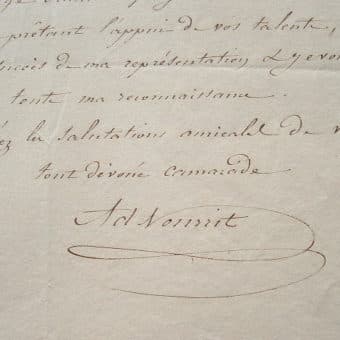 prêtant l'appui de vos talents,
succès de ma représentation, & je vou
toute ma reconnaissance.
ez les salutations amicales de v
tout dévoué camarade
Ad Nourrit